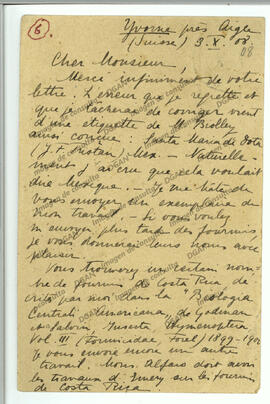 (6)
Yvorne près Aigle
(Suisse) 3. X. 08
08
Cher Monsieur,
Merci infiniment de votre
lettre. L'erreur que je regrette et
que je tacherai de corriger vient
d'une etiquette de Biolley
ainsi conçue: Santa Maria de Dota
(J. F. Tristan) Mex. – Naturelle-
ment j'ai cru que cela voulait
dire Mexique. – Je me hâte de
vous envoyer un exemplaire de
mon travail. – Si vous voulez
m'envoyer plus tard des fourmis,
je vous donnerai leurs noms avec
plaisir.
Vous trouverez un certain nom-
bre de fourmis de Costa Rica de-
crites par moi dans la Biologia
Centrali Americana, de Godman
et Salvin, Insecta Hymenoptera
Vol. III (Formicidae, Forel) 1899-190
je vous envoie encore un autre
travail. Mons. Alfaro doit avoir
les travaux d'Emery sur les fourmis
de Costa Rica
DGAN
Imagen de consulta